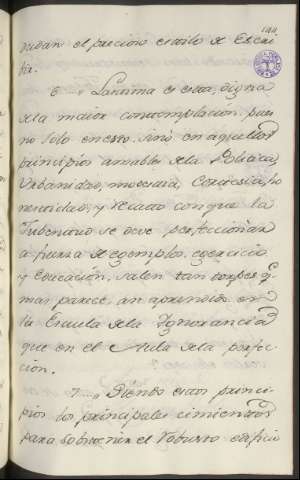 vidan el precioso estilo de Escri-
bir.
6. Lastima es esta, digna
de la maior contemplacion pues
no solo en esto, sino en aquellos
principios amables de la Politica,
Urbanidad, modestia, Cortesia, ho
nestidad, y recato con que la
Juventud se deve perfeccionar
a fuerza de egemplos, egercicio
y Educacion, salen tan torpes q.e
mas parece an aprendido en
la Escuela de la Ygnorancia
que en el Aula de la perfec-
cion.
7. Siendo estos princi-
pios los principales cimientos
para sobstener el robusto edificio